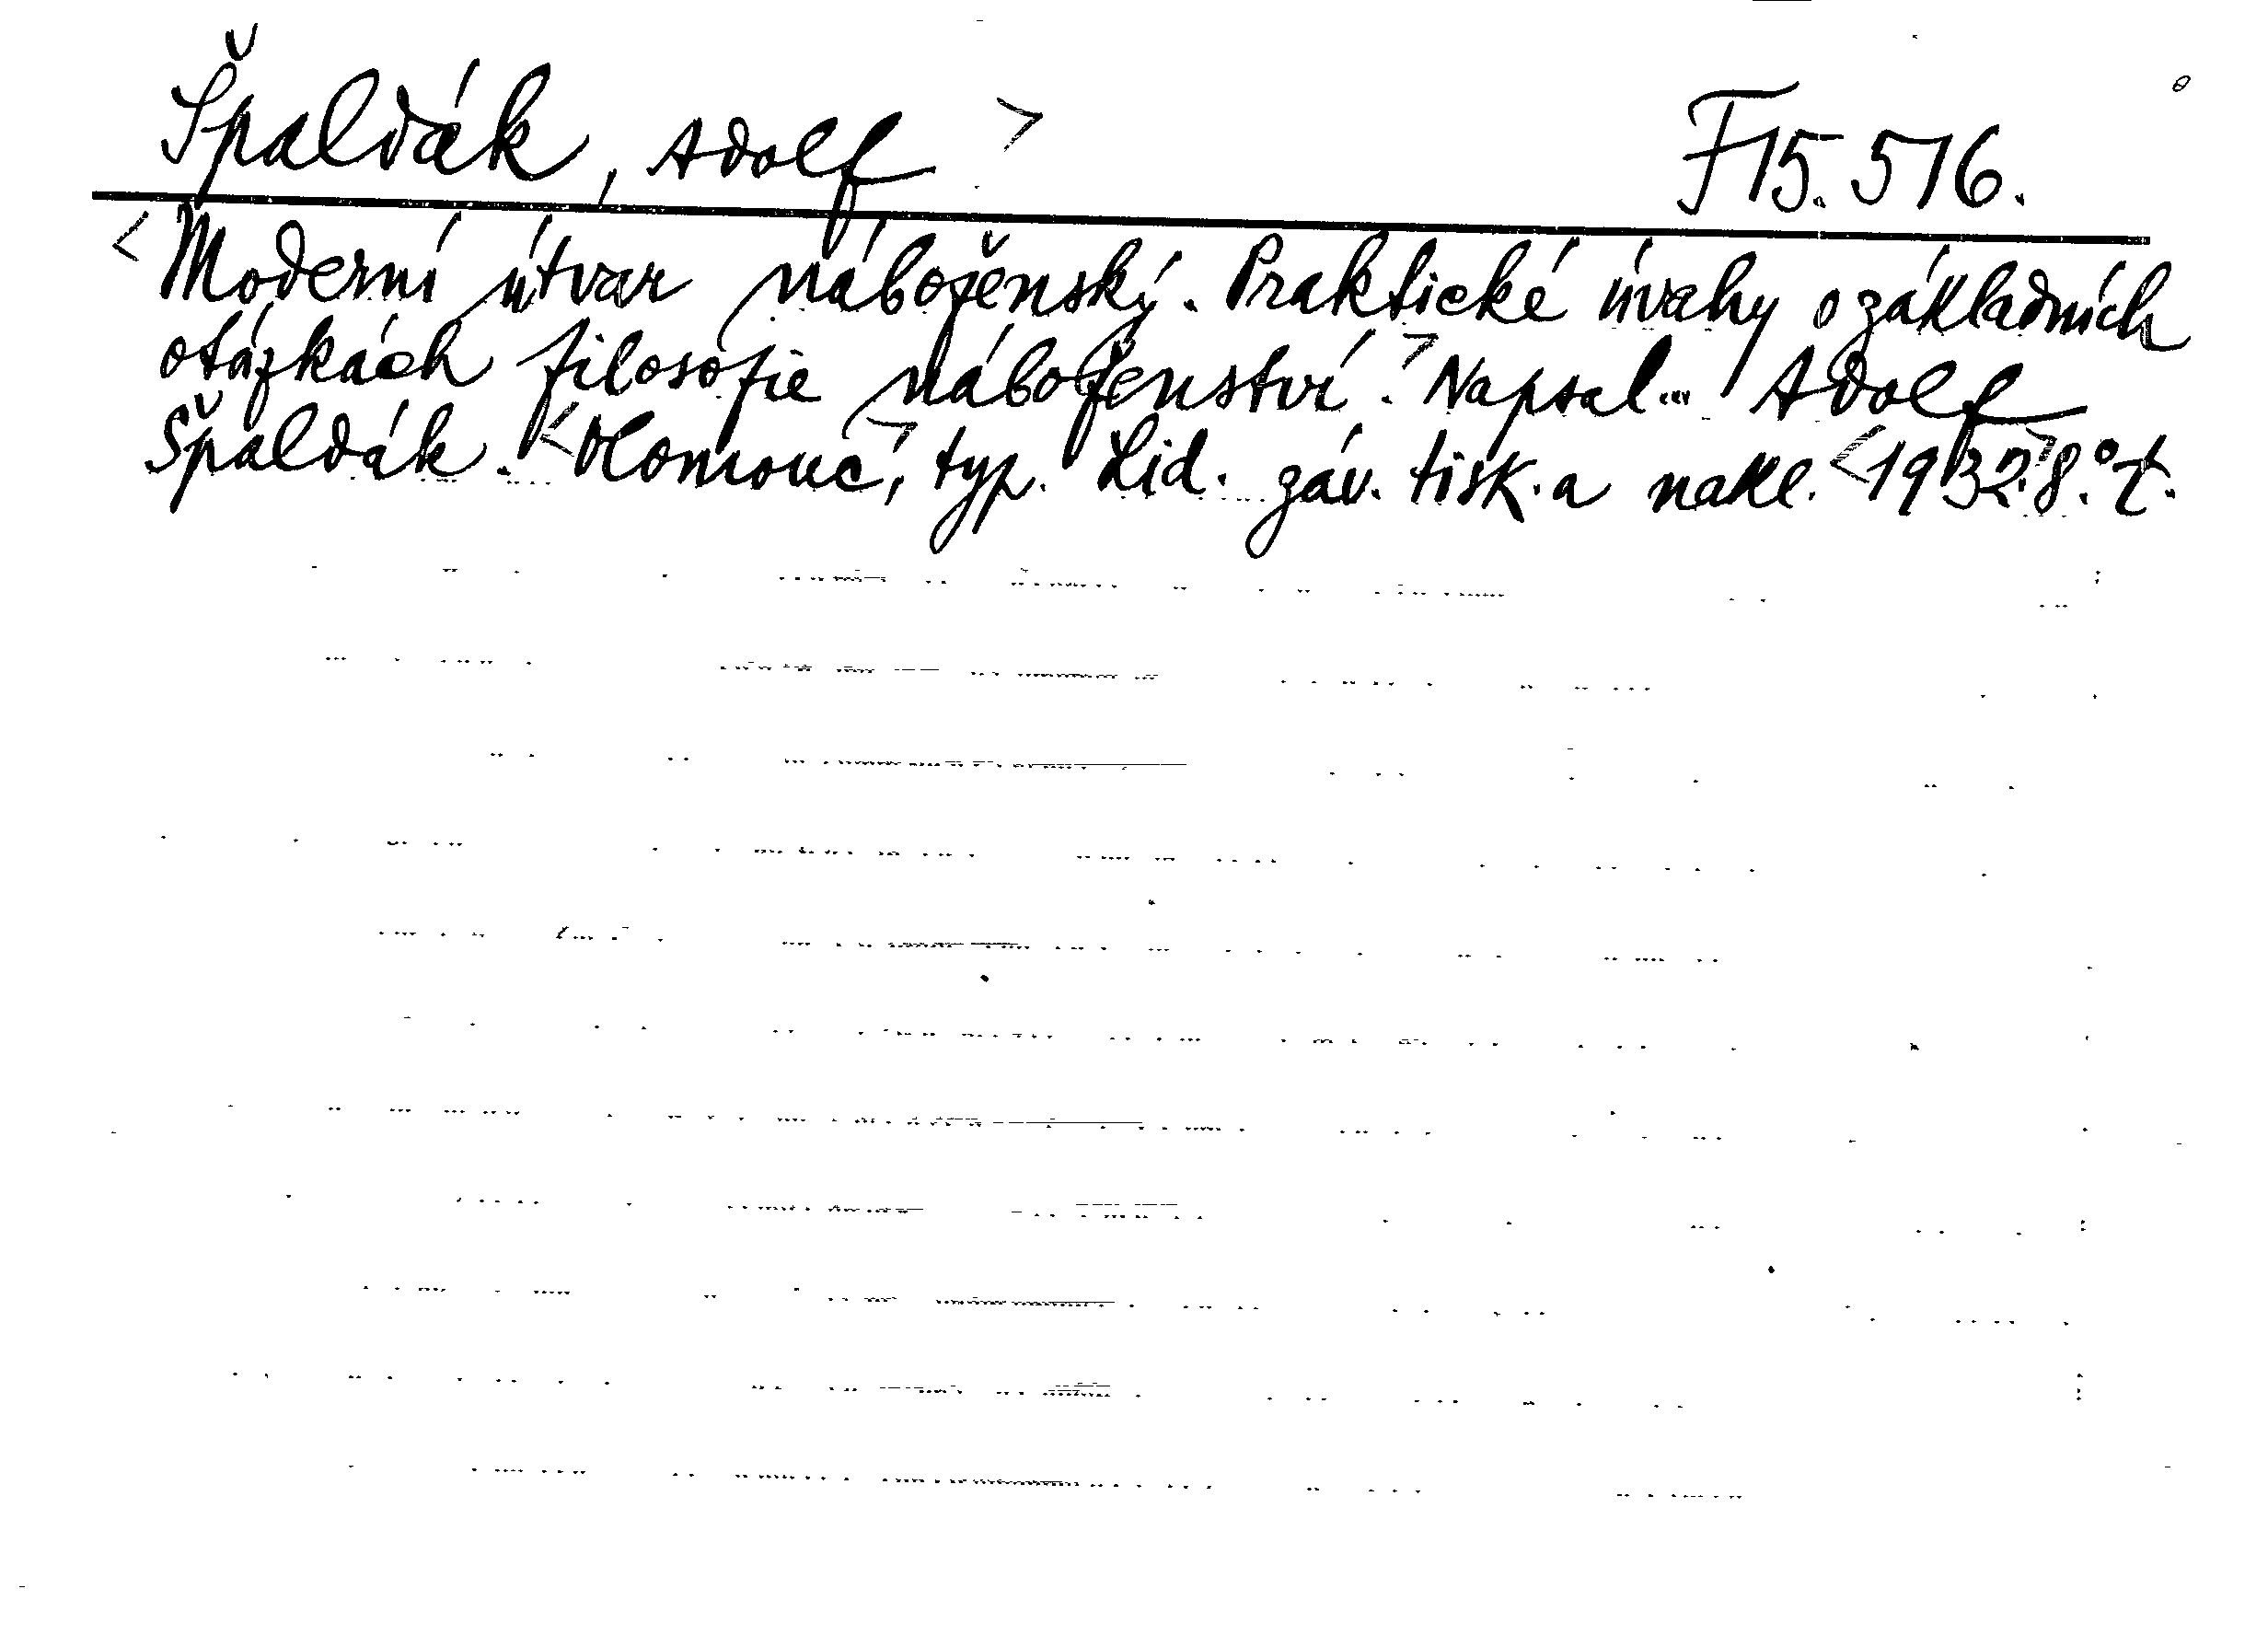 Špaldák, Adolf > F 15.516.
<Moderní útvar náboženský. Praktické úvahy o základních
otázkách filosofie náboženství.> Napsal... Adolf
Špaldák. <Olomouc>, typ. Lid. záv. tisk. a nakl. <1932.> 8.°